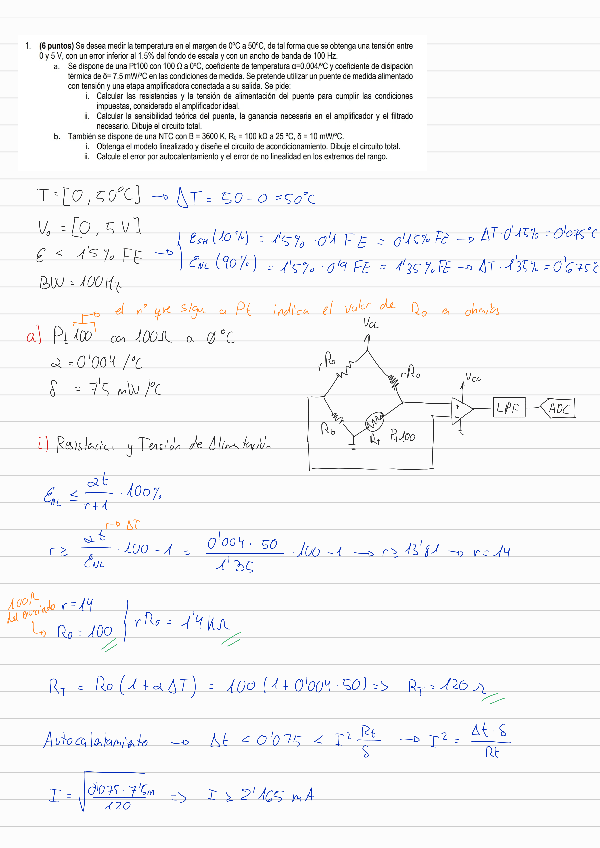 1. (6 puntos) Se desea medir la temperatura en el margen de 0ºC a 50ºC, de tal forma que se obtenga una tensión entre
0 y 5 V, con un error inferior al 1.5% del fondo de escala y con un ancho de banda de 100 Hz.
a. Se dispone de una Pt100 con 100 Ω a 0ºC, coeficiente de temperatura α=0.004/ºC y coeficiente de disipación
térmica de δ= 7.5 mW/ºC en las condiciones de medida. Se pretende utilizar un puente de medida alimentado
con tensión y una etapa amplificadora conectada a su salida. Se pide:
i. Calcular las resistencias y la tensión de alimentación del puente para cumplir las condiciones
impuestas, considerado el amplificador ideal.
ii. Calcular la sensibilidad teórica del puente, la ganancia necesaria en el amplificador y el filtrado
necesario. Dibuje el circuito total.
b. También se dispone de una NTC con B = 3600 K, R₀ = 100 kΩ a 25 ºC, δ = 10 mW/ºC.
i. Obtenga el modelo linealizado y diseñe el circuito de acondicionamiento. Dibuje el circuito total.
ii. Calcule el error por autocalentamiento y el error de no linealidad en los extremos del rango.
T = [0, 50ºC] → ΔT = 50 - 0 = 50ºC
V₀ = [0, 5V]
ε < 1'5% FE →
ε_SH (10%) = 1'5% · 0'1 FE = 0'15% FE → ΔT · 0'15% = 0'075ºC
ε_NL (90%) = 1'5% · 0'9 FE = 1'35% FE → ΔT · 1'35% = 0'675º
BW = 100Hz
→ el nº que sigue a Pt indica el valor de R₀ en ohmios
a) Pt 100 con 100Ω a 0ºC
α = 0'004 /ºC
δ = 7'5 mW/ºC
Vcc
rR₀
rR₀
R₀
RT Pt100
Vcc
LPF
ADC
i) Resistencias y Tensión de Alimentación
ε_NL ≤ αt / r+1 · 100%
t → ΔT
r ≥ αt / ε_NL · 100 - 1 = 0'004 · 50 / 1'35 · 100 - 1 → r ≥ 13'81 → r = 14
100Ω
del enunciado
r = 14
R₀ = 100
rR₀ = 1'4 kΩ
RT = R₀ (1 + αΔT) = 100 (1 + 0'004 · 50) => RT = 120 Ω
Autocalentamiento → Δt < 0'075 < I² Rt / δ → I² = Δt δ / Rt
I = √(0'075 · 7'5m / 120) => I ≥ 2'165 mA